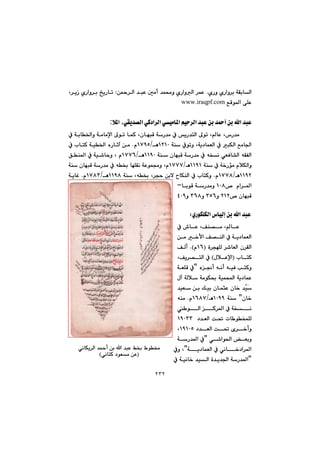 السابقة برواري وري. عمر البرواري ومحمد أمين عبد الرحمن: تاريخ برواري زير،
على الموقع www.iraqpf.com
عبد الله بن أحمد بن عبد الرحيم
مدرس، عالم، تولى التدريس في مدرسة قبهان، كما تولى الإمامة والخطابة في
الجامع الكبير في العمادية، وتوفي سنة ١٢١٠هـ/١٧٩٥م. من آثاره الخطية كتاب في
الفقه الشافعي نسخه في مدرسة قبهان سنة ١١٩٠هـ/١٧٧٦م، وحاشية في المنطق
والكلام مؤرخة في سنة ١١٩١هـ/١٧٧٧م، ومجموعة نقلها بخطه في مدرسة قبهان سنة
١١٩٢هـ/١٧٧٨م. وكتاب في النكاح لابن حجر، بخطه، سنة ١١٩٨هـ/١٧٨٣م. غاية
المرام ص١٠٨ ومدرسة قوبا-
قبهان ص٣١٢ و٣٦٨ و٤٠٩
عبد الله بن إلياس
عالم، مصنف، عاش في
العمادية في النصف الأخير من
القرن العاشر للهجرة (١٦م). ألف
كتاب (الإعلال) في التصريف،
وكتب فيه أنه أنجزه "في قلعة
عمادية المحمية بحكومة سلالة آل
سيد خان عثمان بيك بن سعيد
خان" سنة ١٠٩٩هـ/١٦٨٧م. منه
نسخة في المركز الوطني
للمخطوطات تحت العدد ١٩٠٣٣
وأخرى تحت العدد ١٩١٠٥،
وبعض الحواشي "في المدرسة
المرادخانية في العمادية"، وفي
"المدرسة الجديدة السيد خانية في
مخطوط بخط عبد الله بن أحمد الريكاني
(عن مسعود كتاني)
٢٣٢